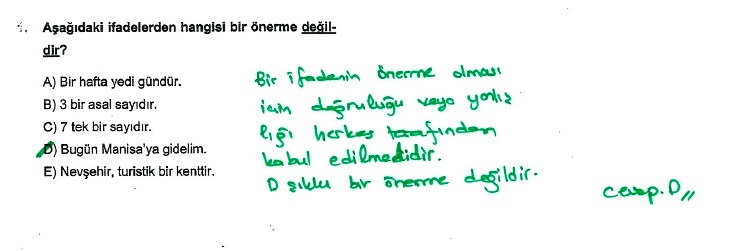 1. Aşağıdaki ifadelerden hangisi bir önerme değil-
dir?
A) Bir hafta yedi gündür.
B) 3 bir asal sayıdır.
C) 7 tek bir sayıdır.
D) Bugün Manisa'ya gidelim.
E) Nevşehir, turistik bir kenttir.
Bir ifadenin önerme olması
için doğruluğu veya yanlış
lığı herkes tarafından
kabul edilmelidir.
D şıkkı bir önerme değildir.
cevap. D